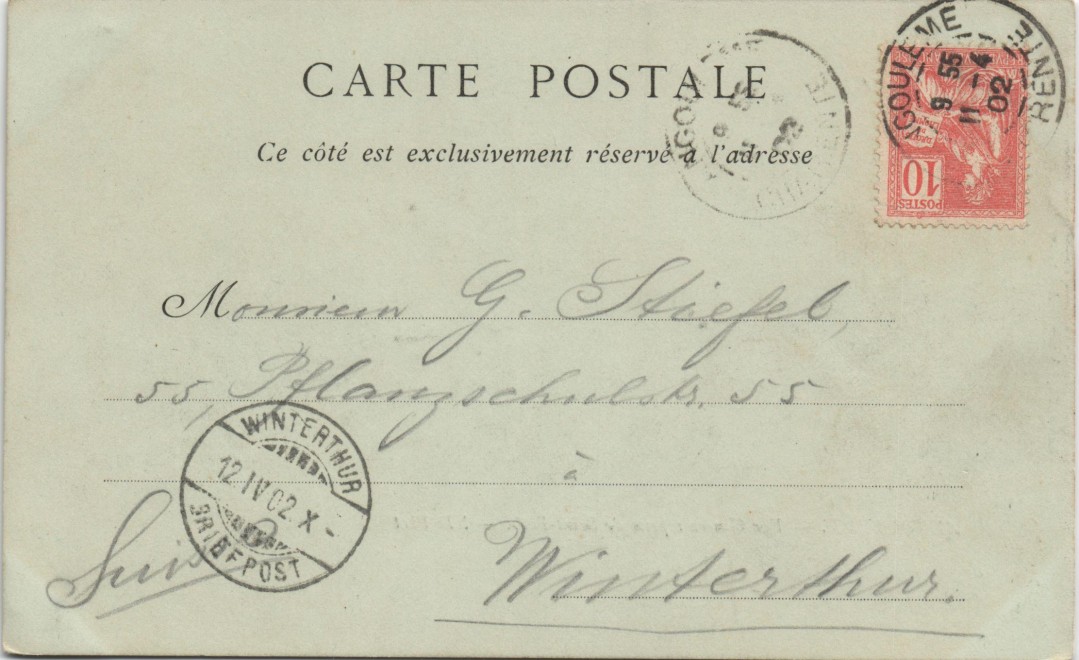 CARTE POSTALE
Ce côté est exclusivement réservé à l'adresse
ANGOULEME
9 55
11 - 4
02
CHARENTE
ANGOULEME
9 55
11 - 4
02
CHARENTE
10
POSTES
Monsieur G. Stiefel,
55, Pflanzschulstr. 55
à
Winterthur.
Suisse
WINTERTHUR
12 IV 02 X-
BRIEFPOST